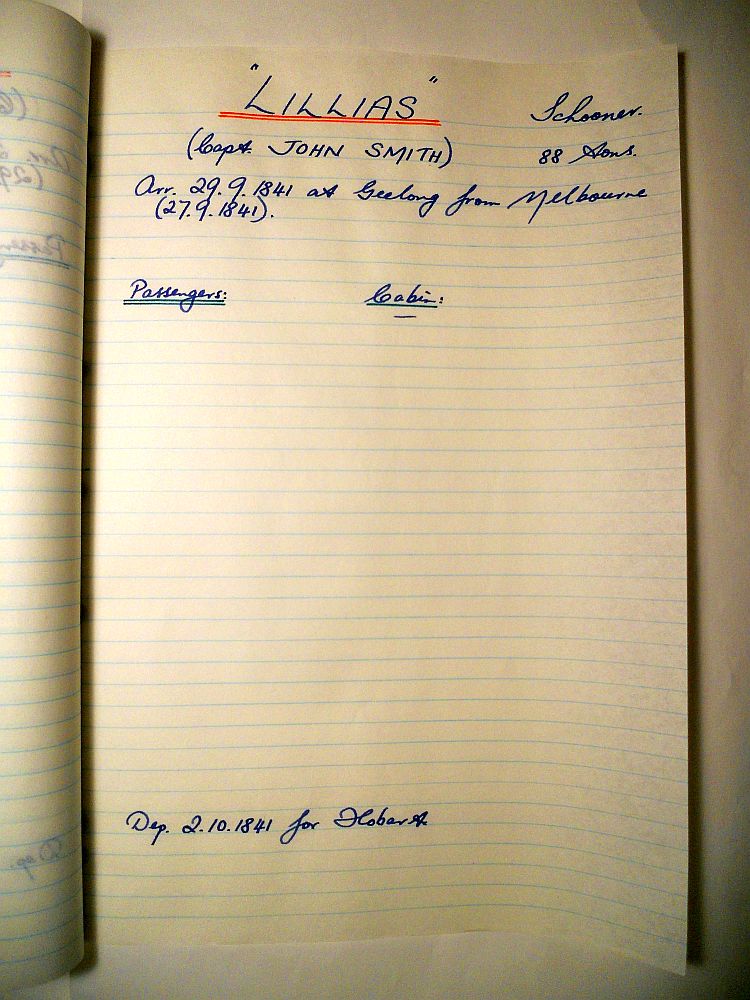 "LILLIAS" Schooner.
(Capt. JOHN SMITH) 88 tons.
Arr. 29.9.1841 at Geelong from Melbourne
(27.9.1841).
Passengers: Cabin:
—
Dep. 2.10.1841 for Hobart